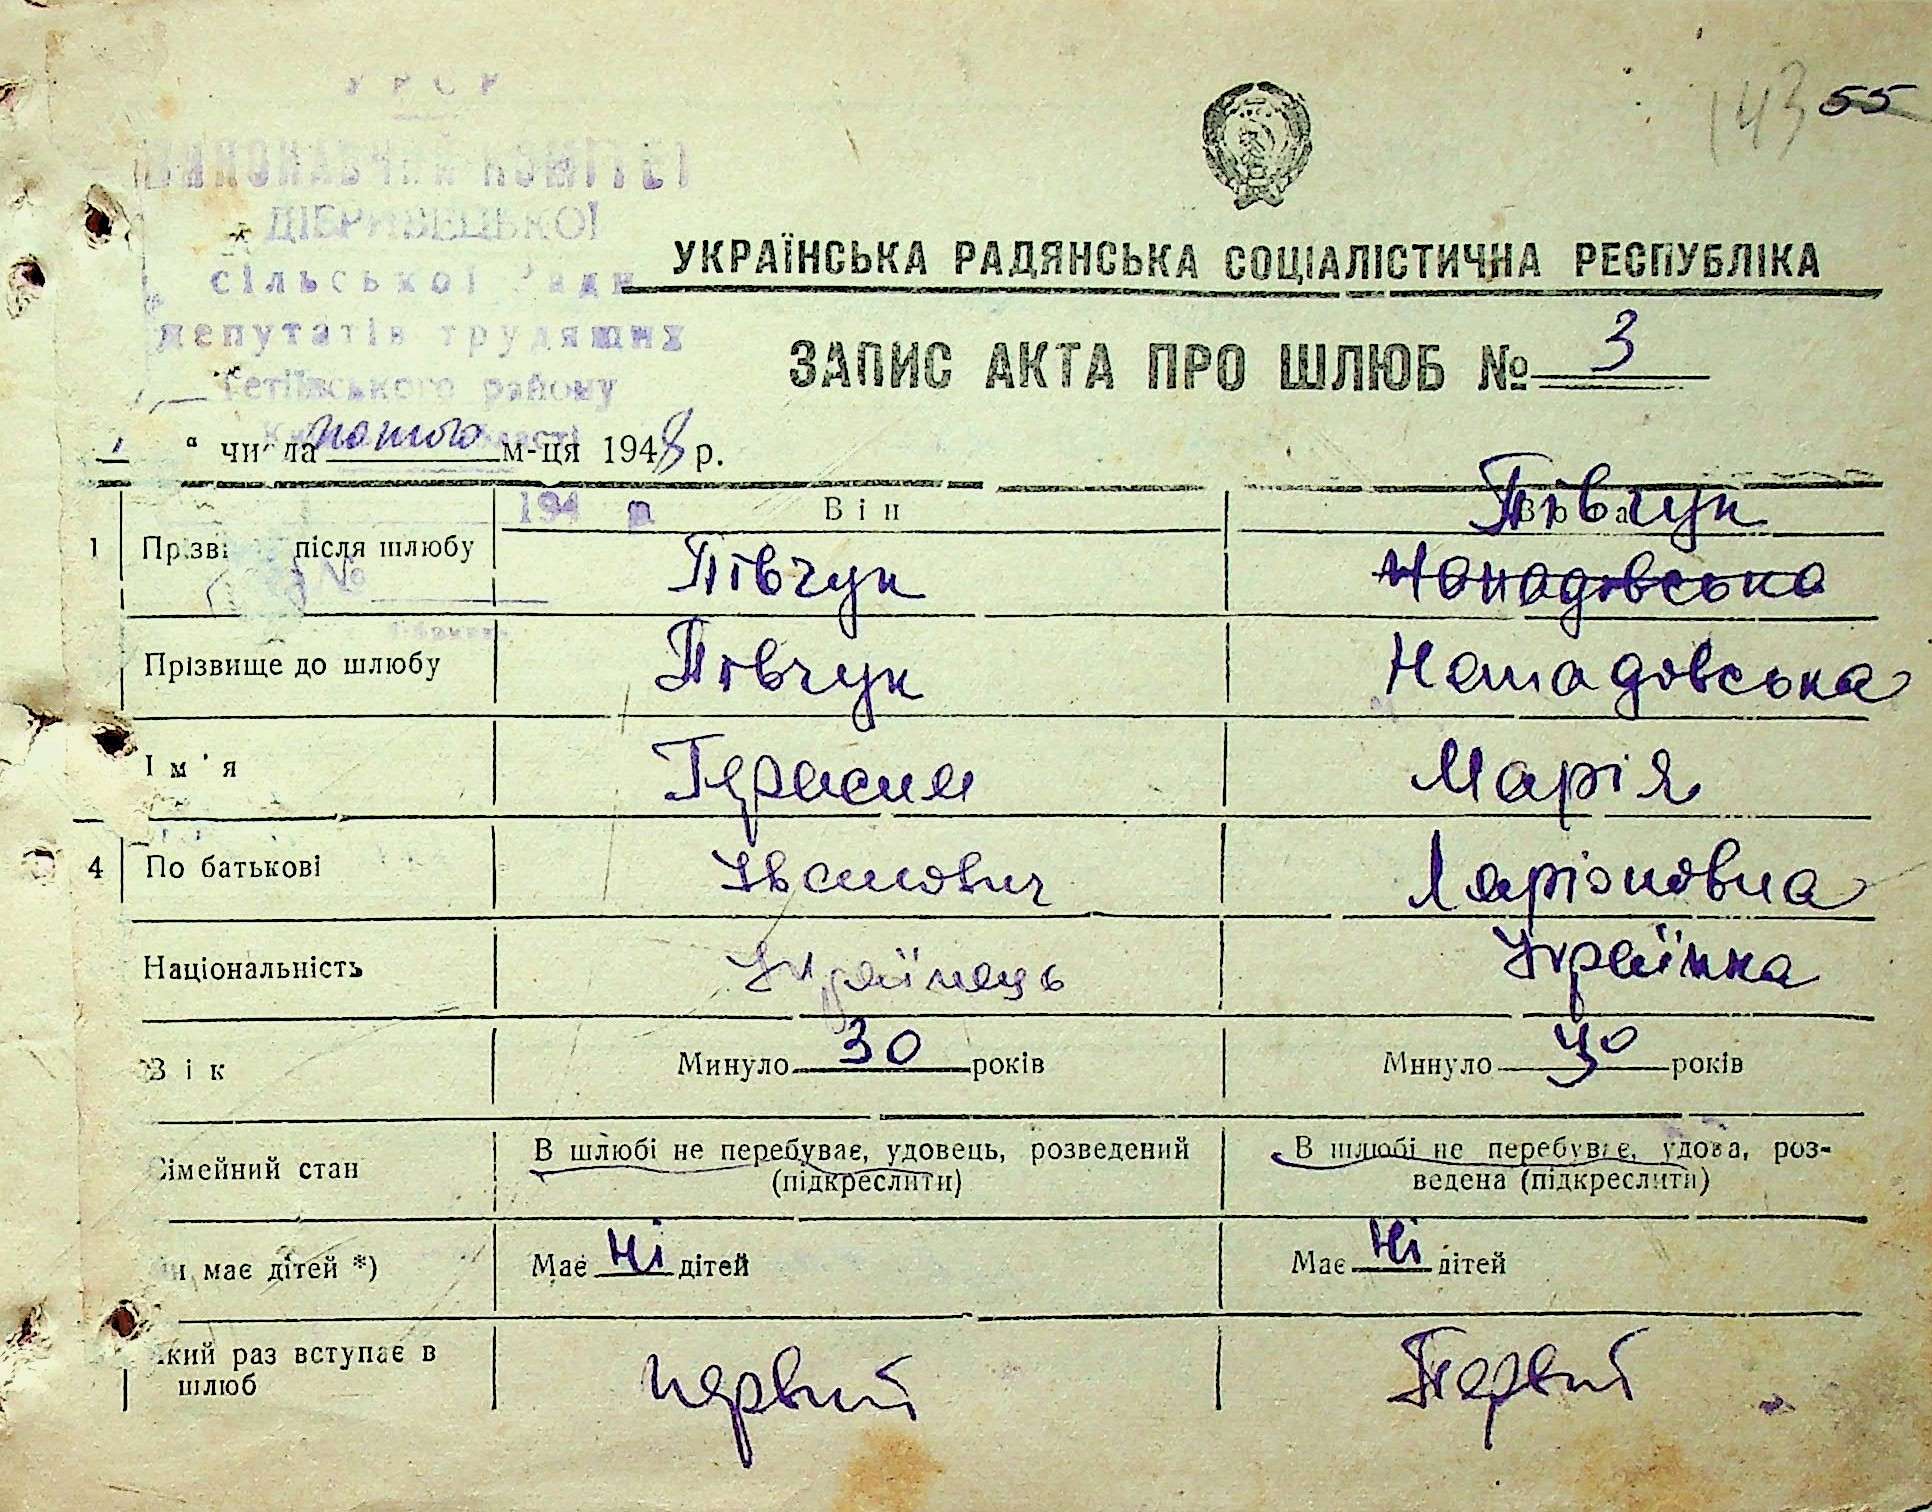 143 55
УРСР
ВИКОНАВЧИЙ КОМІТЕТ
ДІБРИВЕЦЬКОЇ
сільської Ради
депутатів трудящих
Тетіївського району
УКРАЇНСЬКА РАДЯНСЬКА СОЦІАЛІСТИЧНА РЕСПУБЛІКА
ЗАПИС АКТА ПРО ШЛЮБ № 3
" числа лютого м-ця 1948 р.
194 р
Він Вона
Півчук
1 Прізвище після шлюбу Півчук
№
Прізвище до шлюбу Півчук Немадовська
Ім'я Герасим Марія
4 По батькові Іванович Ларіоновна
Національність Українець Українка
Вік Минуло 30 років Минуло 30 років
Сімейний стан В шлюбі не перебуває, удовець, розведений (підкреслити) В шлюбі не перебуває, удова, роз-
ведена (підкреслити)
Чи має дітей *) Має Ні дітей Має Ні дітей
Який раз вступає в
шлюб первий Первий